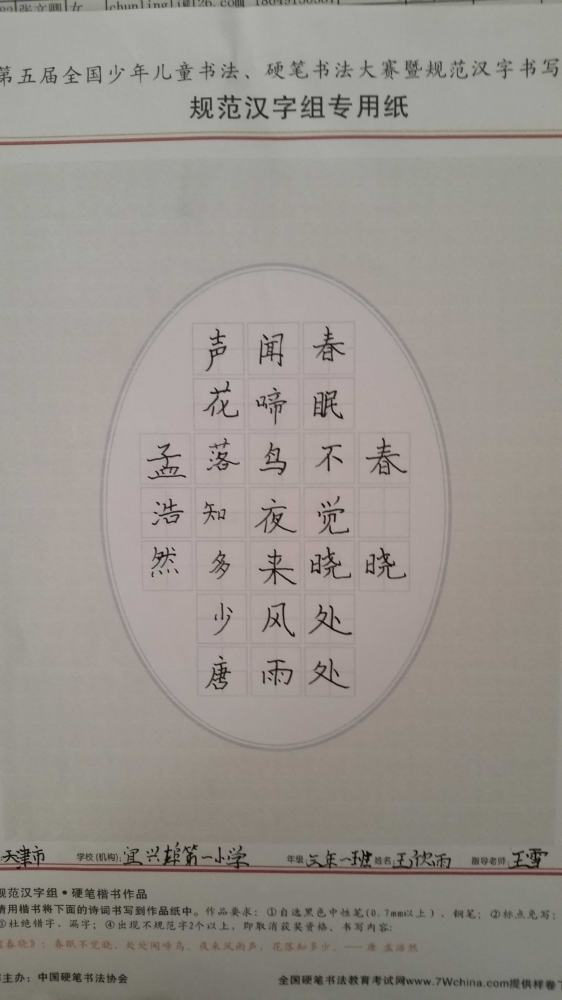 张文卿 女
第五届全国少年儿童书法、硬笔书法大赛暨规范汉字书写
规范汉字组专用纸
春晓
春眠不觉晓处处
闻啼鸟夜来风雨
声花落知多少唐
孟浩然
天津市 学校(机构): 宜兴埠第一小学 年级: 三年一班 姓名 王欣雨 指导老师: 王雪
规范汉字组·硬笔楷书作品
请用楷书将下面的诗词书写到作品纸中。作品要求:①自选黑色中性笔(0.7mm以上)、钢笔;②标点免写;
③杜绝错字、漏字;④出现不规范字2个以上,即取消获奖资格。书写内容:
《春晓》:春眠不觉晓,处处闻啼鸟。夜来风雨声,花落知多少。——唐 孟浩然
主办:中国硬笔书法协会 全国硬笔书法教育考试网www.7Wchina.com提供样卷